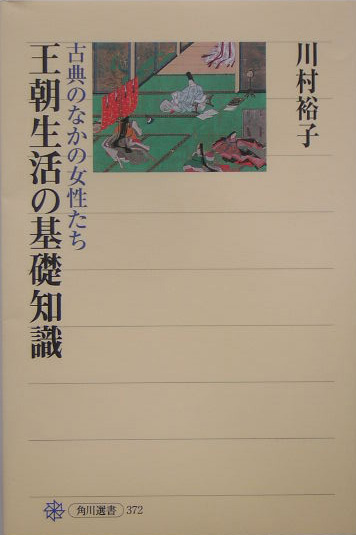 川村裕子
古典のなかの女性たち
王朝生活の基礎知識
角川選書 372